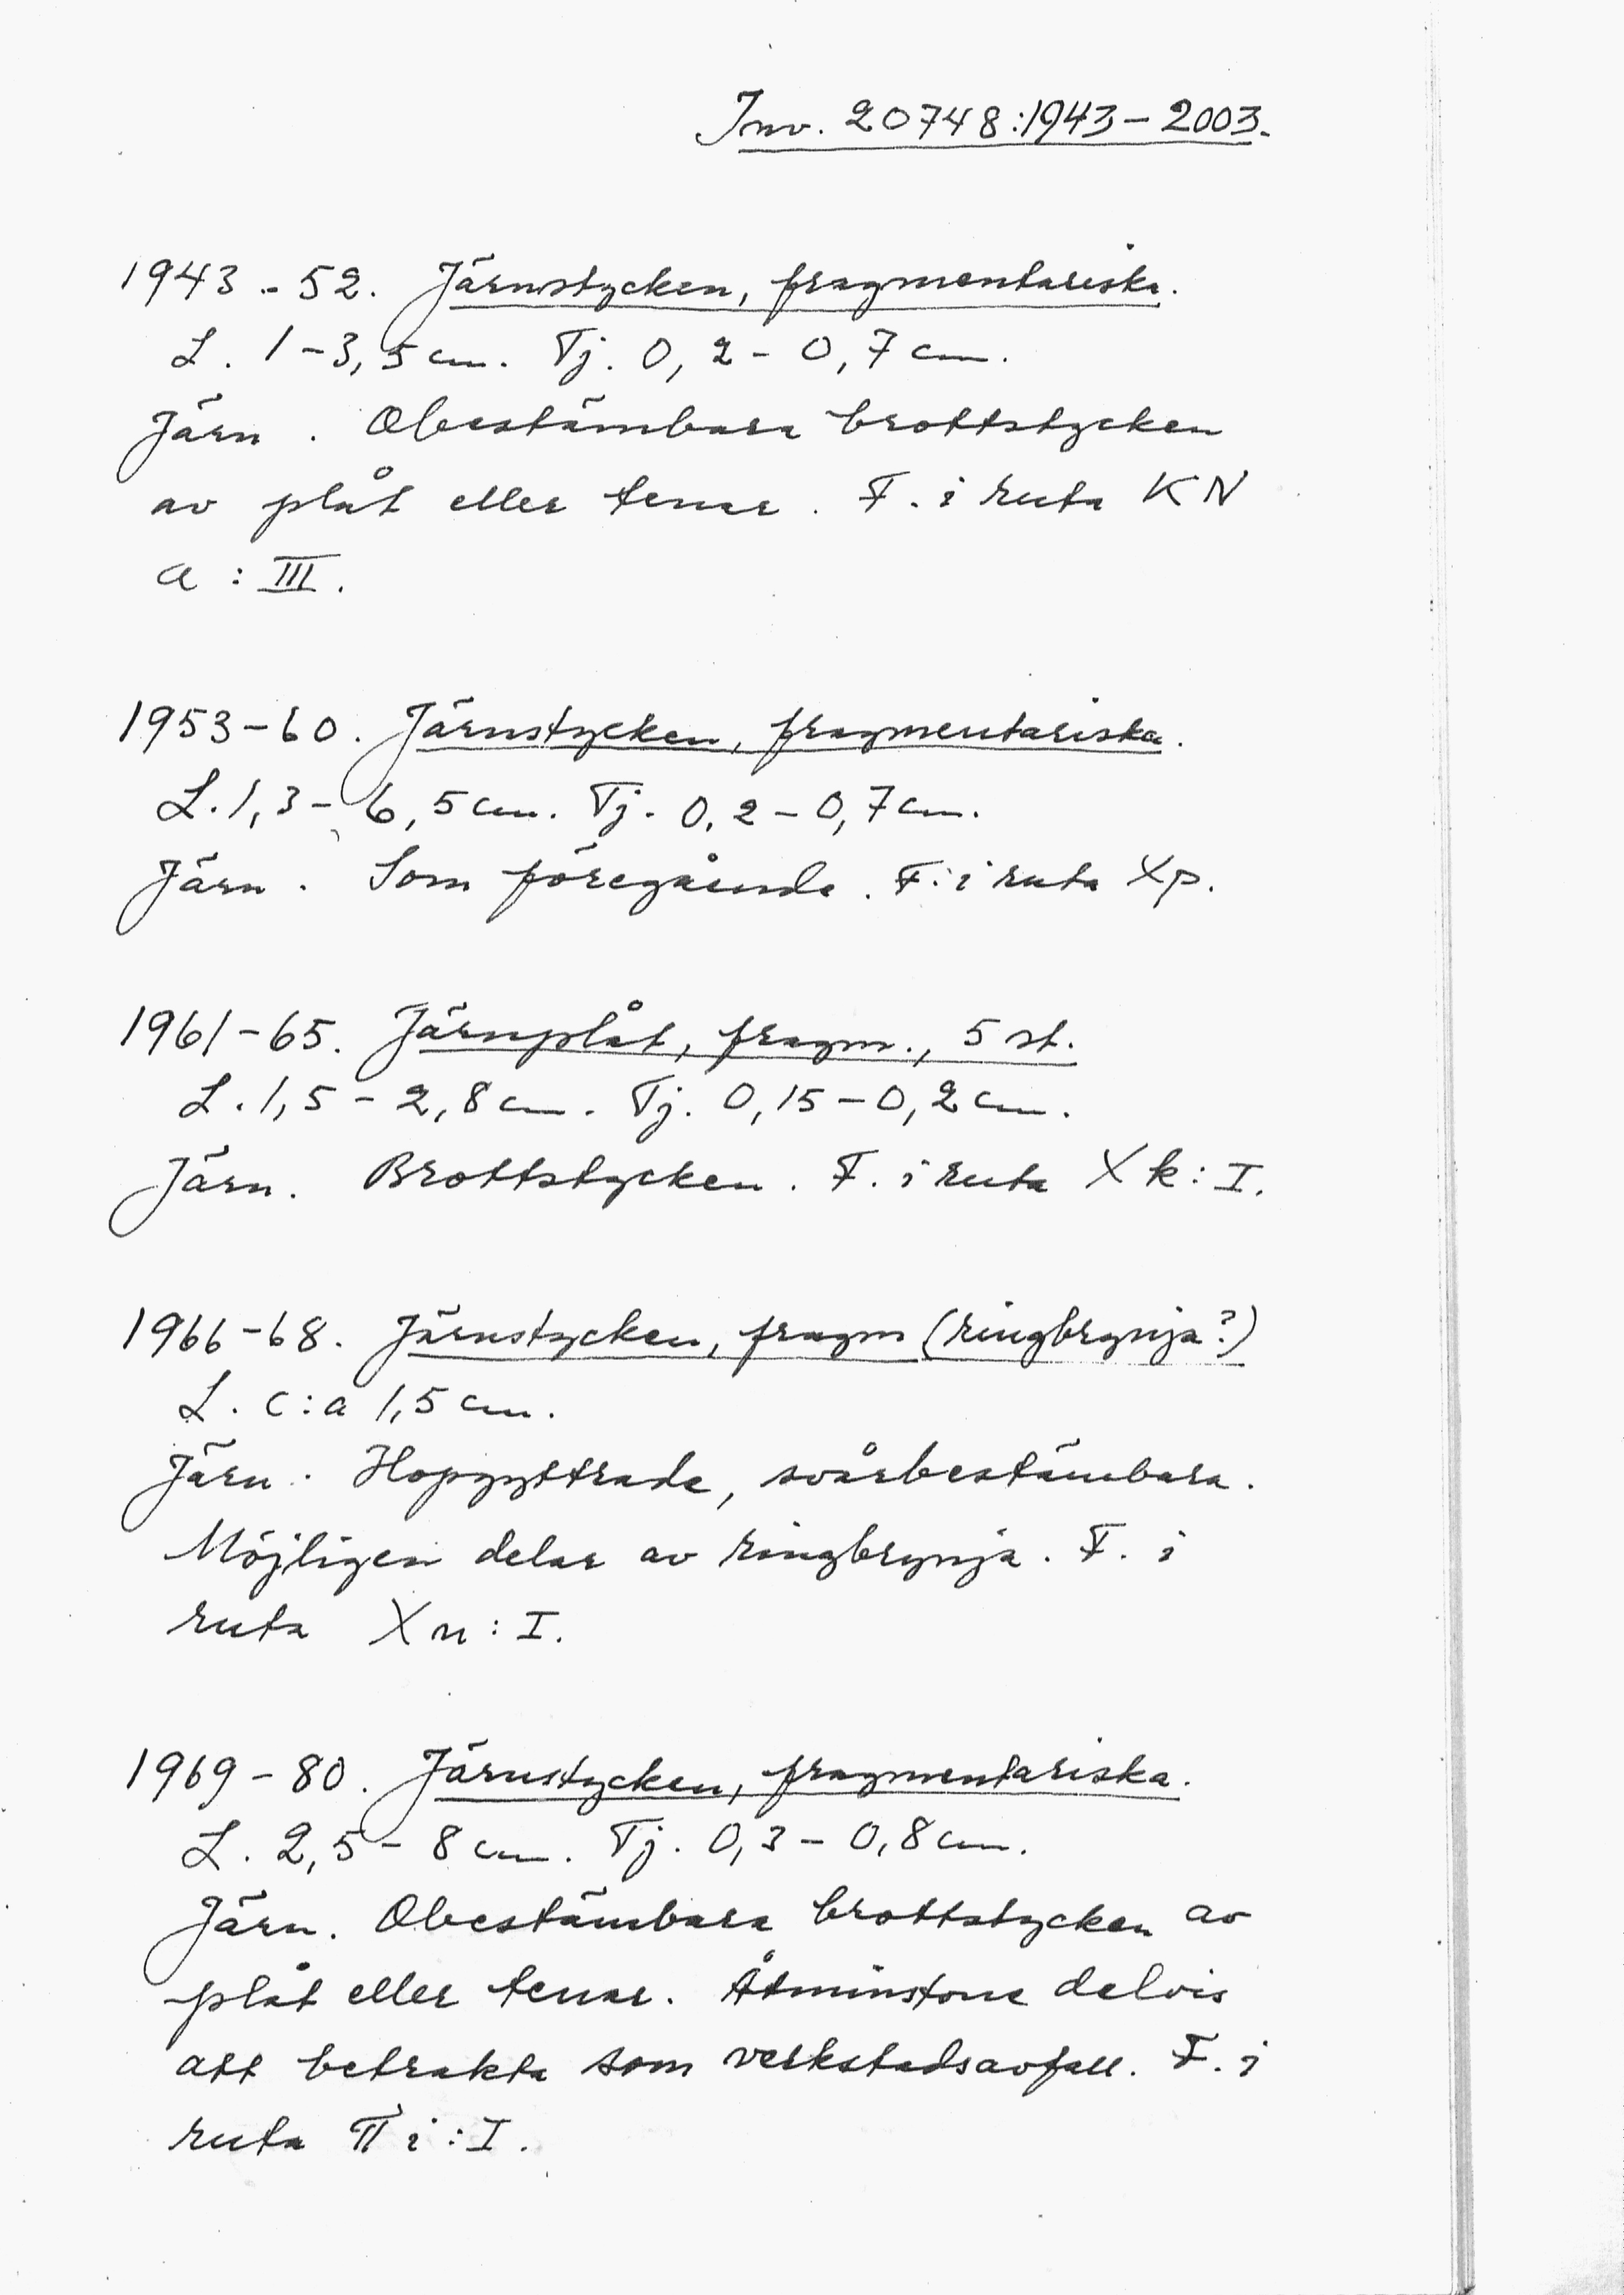 Inv. 20748:1943-2003.
1943-52. Järnstycken, fragmentariska.
L. 1-3,5 cm. Tj. 0,2-0,7 cm.
Järn. Obestämbara brottstycken
av plåt eller tenar. F. i ruta KN
a : III.
1953-60. Järnstycken, fragmentariska.
L. 1,3-6,5 cm. Tj. 0,2-0,7 cm.
Järn. Som föregående. F. i ruta Xp.
1961-65. Järnplåt, fragm., 5 st.
L. 1,5-2,8 cm. Tj. 0,15-0,2 cm.
Järn. Brottstycken. F. i ruta Xk:I.
1966-68. Järnstycken, fragm (ringbrynja?)
L. c:a 1,5 cm.
Järn. Hopgyttrade, svårbestämbara.
Möjligen delar av ringbrynja. F. i
ruta Xn:I.
1969-80. Järnstycken, fragmentariska.
L. 2,5-8 cm. Tj. 0,3-0,8 cm.
Järn. Obestämbara brottstycken av
plåt eller tenar. Åtminstone delvis
att betrakta som verkstadsavfall. F. i
ruta Π i:I.